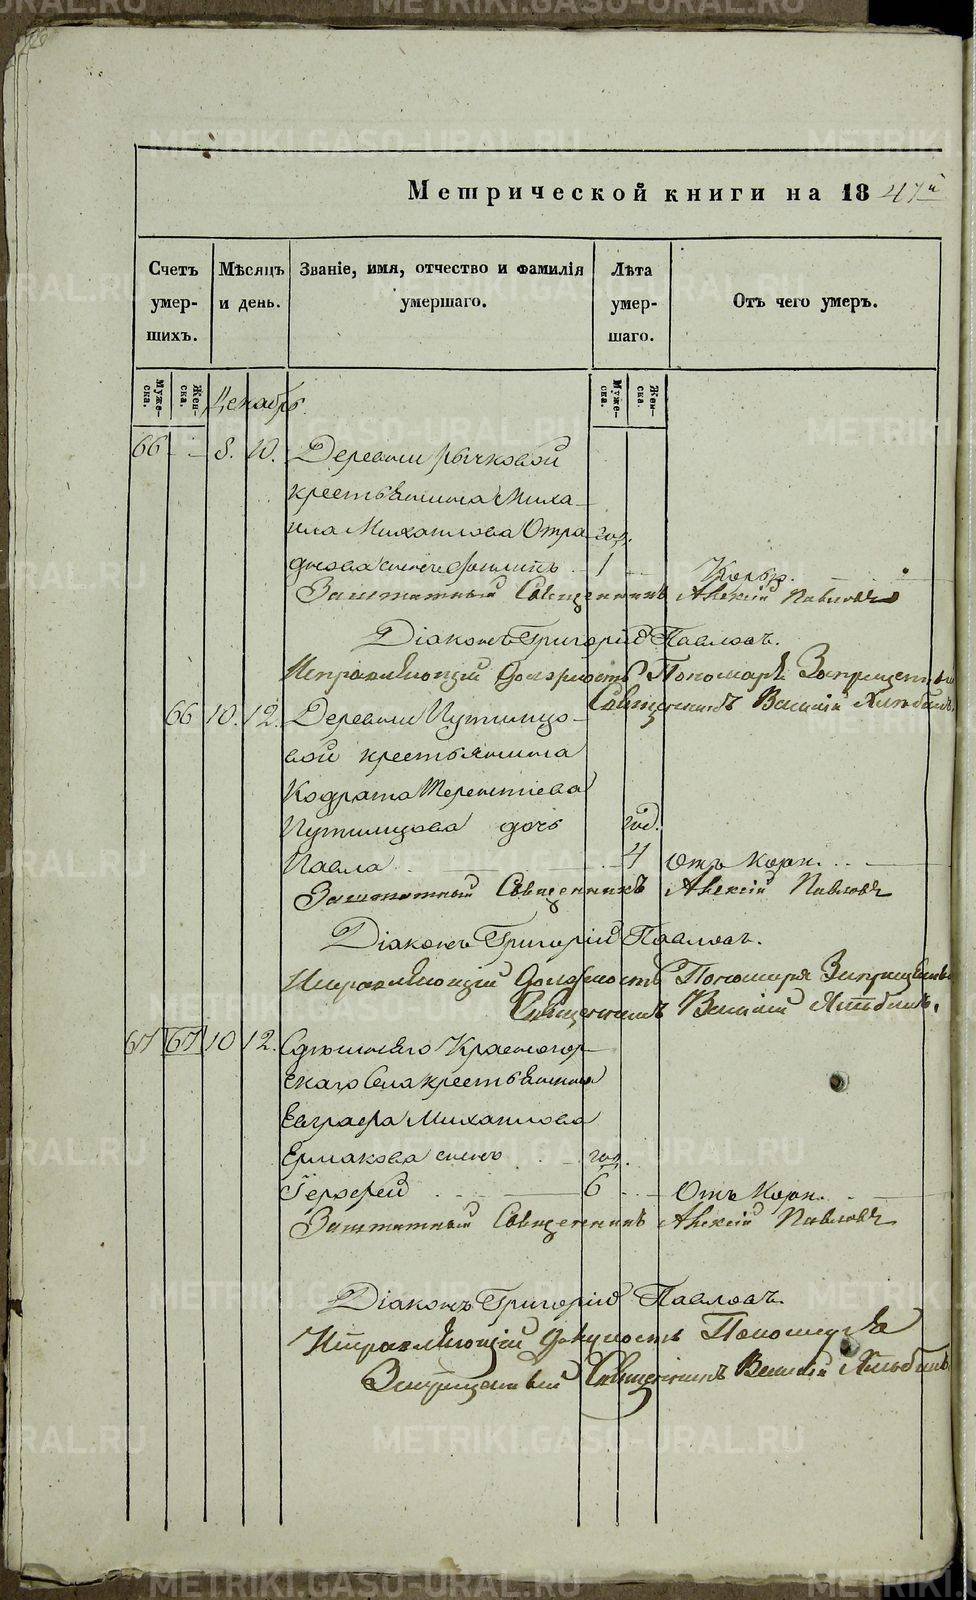 Метрической книги на 1847й
Счетъ умер-шихъ.
Мѣсяцъ и день.
Званіе, имя, отчество и фамилія умершаго.
Лѣта умер-шаго.
Отъ чего умеръ.
Муже-ска.
Жен-ска.
Декабрь
Муже-ска.
Жен-ска.
66 8. 10. Деревни Рычковой
крестьянина Миха-
ила Михаилова Отра год.
днова сынъ Филипъ 1
Заштатный Священникъ Алексій Павловъ
Діаконъ Григорій Павловъ.
Исправляющій Должность Пономаря Запрещенный
66 10. 12. Деревни Путимцо-
Священникъ Василій
вой крестьянина
Кодрата Терентіева
Путимцова дочь год.
Павла 4 отъ кори.
Заштатный Священникъ Алексій Павловъ
Діаконъ Григорій Павловъ.
Исправляющій Должность Пономаря Запрещенный
Священникъ Василій
67 67 10 12. Здешняго Красногор-
скаго Села крестьянина
Евграфа Михаилова
Ермакова сынъ год.
Герофей 6 Отъ Кори.
Заштатный Священникъ Алексій Павловъ
Діаконъ Григорій Павловъ.
Исправляющій Должность Пономаря
Запрещенный Священникъ Василій
METRIKI.GASO-URAL.RU